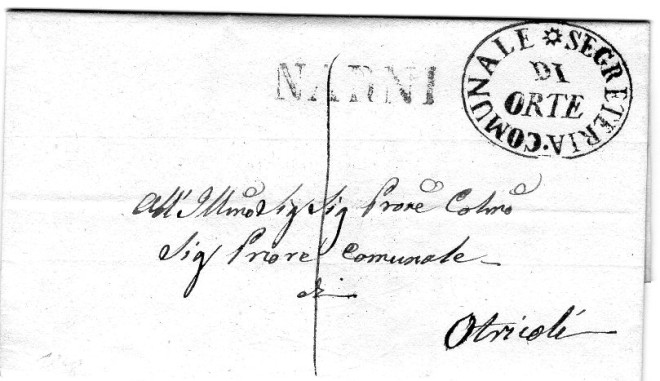 NARNI
SEGRETERIA COMUNALE
DI
ORTE
All' Illmo Sig Sig Prone Colmo
Sig Priore Comunale
di
Otricoli